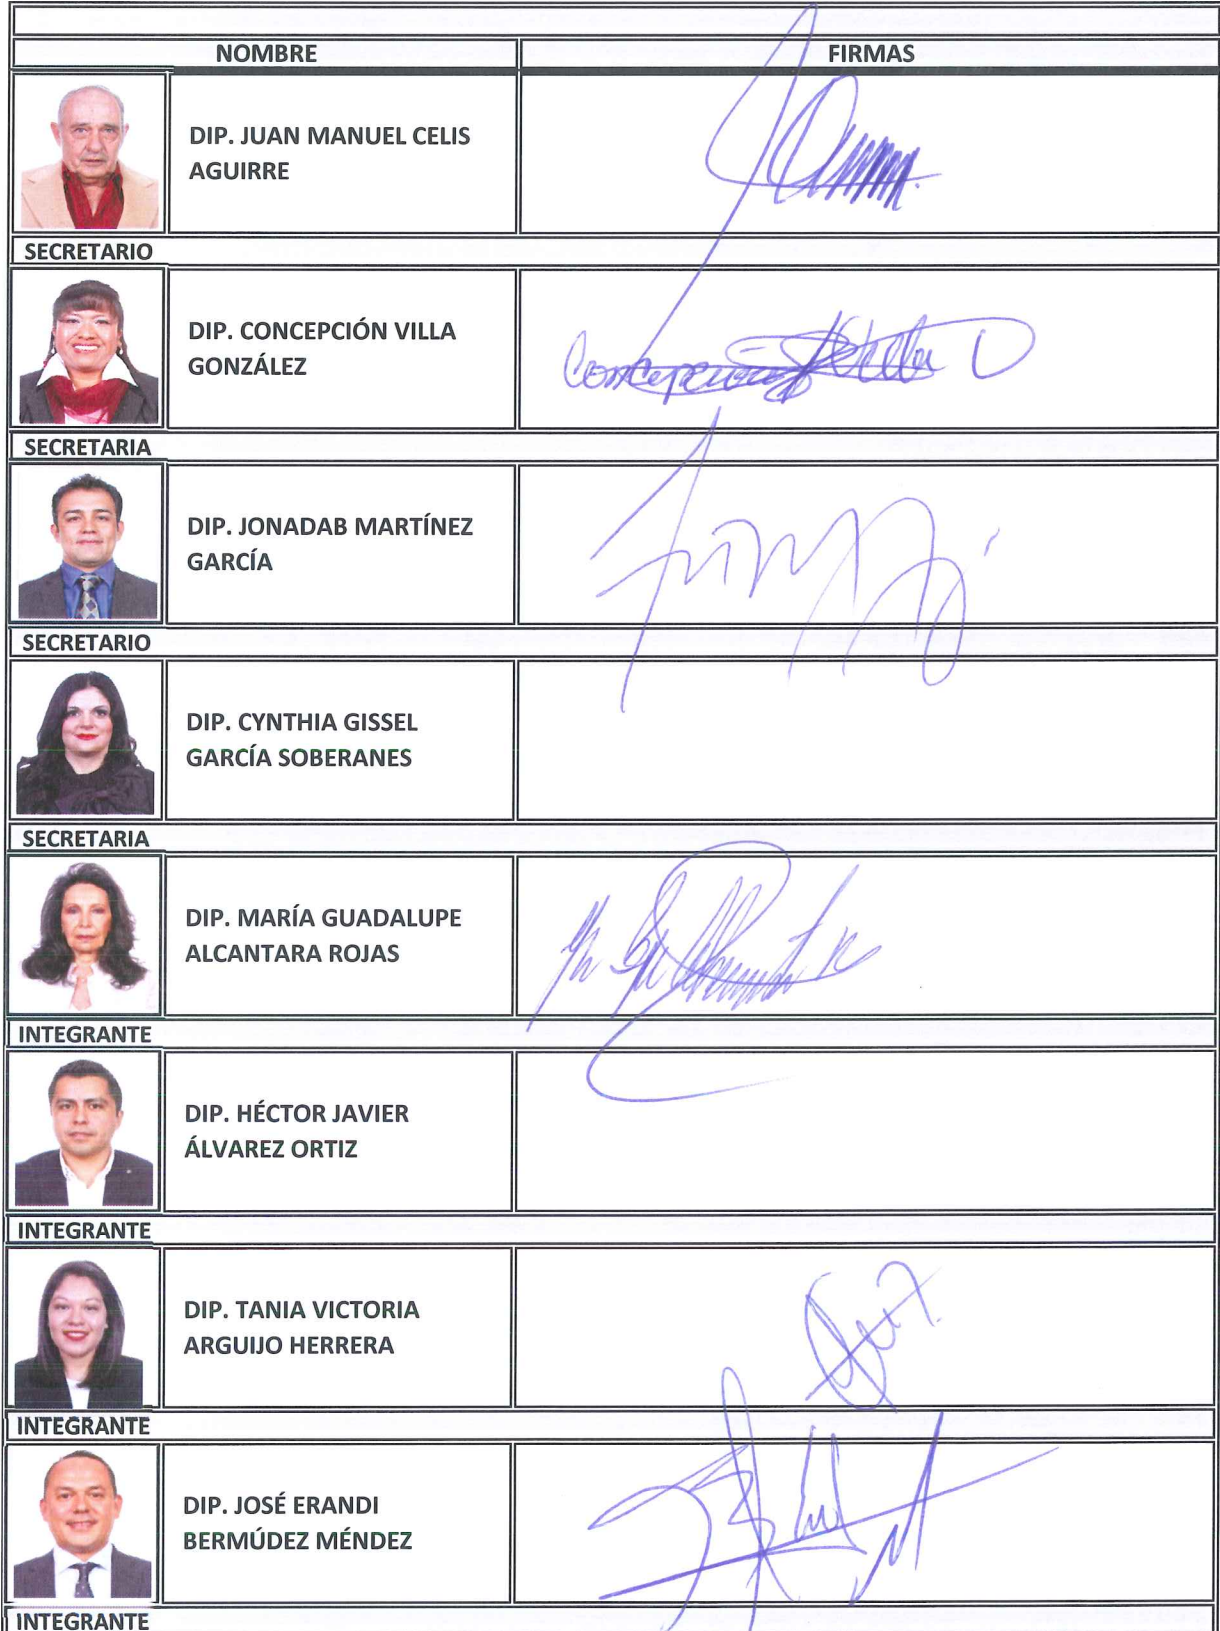 NOMBRE FIRMAS
DIP. JUAN MANUEL CELIS
AGUIRRE
SECRETARIO
DIP. CONCEPCIÓN VILLA
GONZÁLEZ
Concepción Villa
SECRETARIA
DIP. JONADAB MARTÍNEZ
GARCÍA
SECRETARIO
DIP. CYNTHIA GISSEL
GARCÍA SOBERANES
SECRETARIA
DIP. MARÍA GUADALUPE
ALCANTARA ROJAS
INTEGRANTE
DIP. HÉCTOR JAVIER
ÁLVAREZ ORTIZ
INTEGRANTE
DIP. TANIA VICTORIA
ARGUIJO HERRERA
INTEGRANTE
DIP. JOSÉ ERANDI
BERMÚDEZ MÉNDEZ
INTEGRANTE